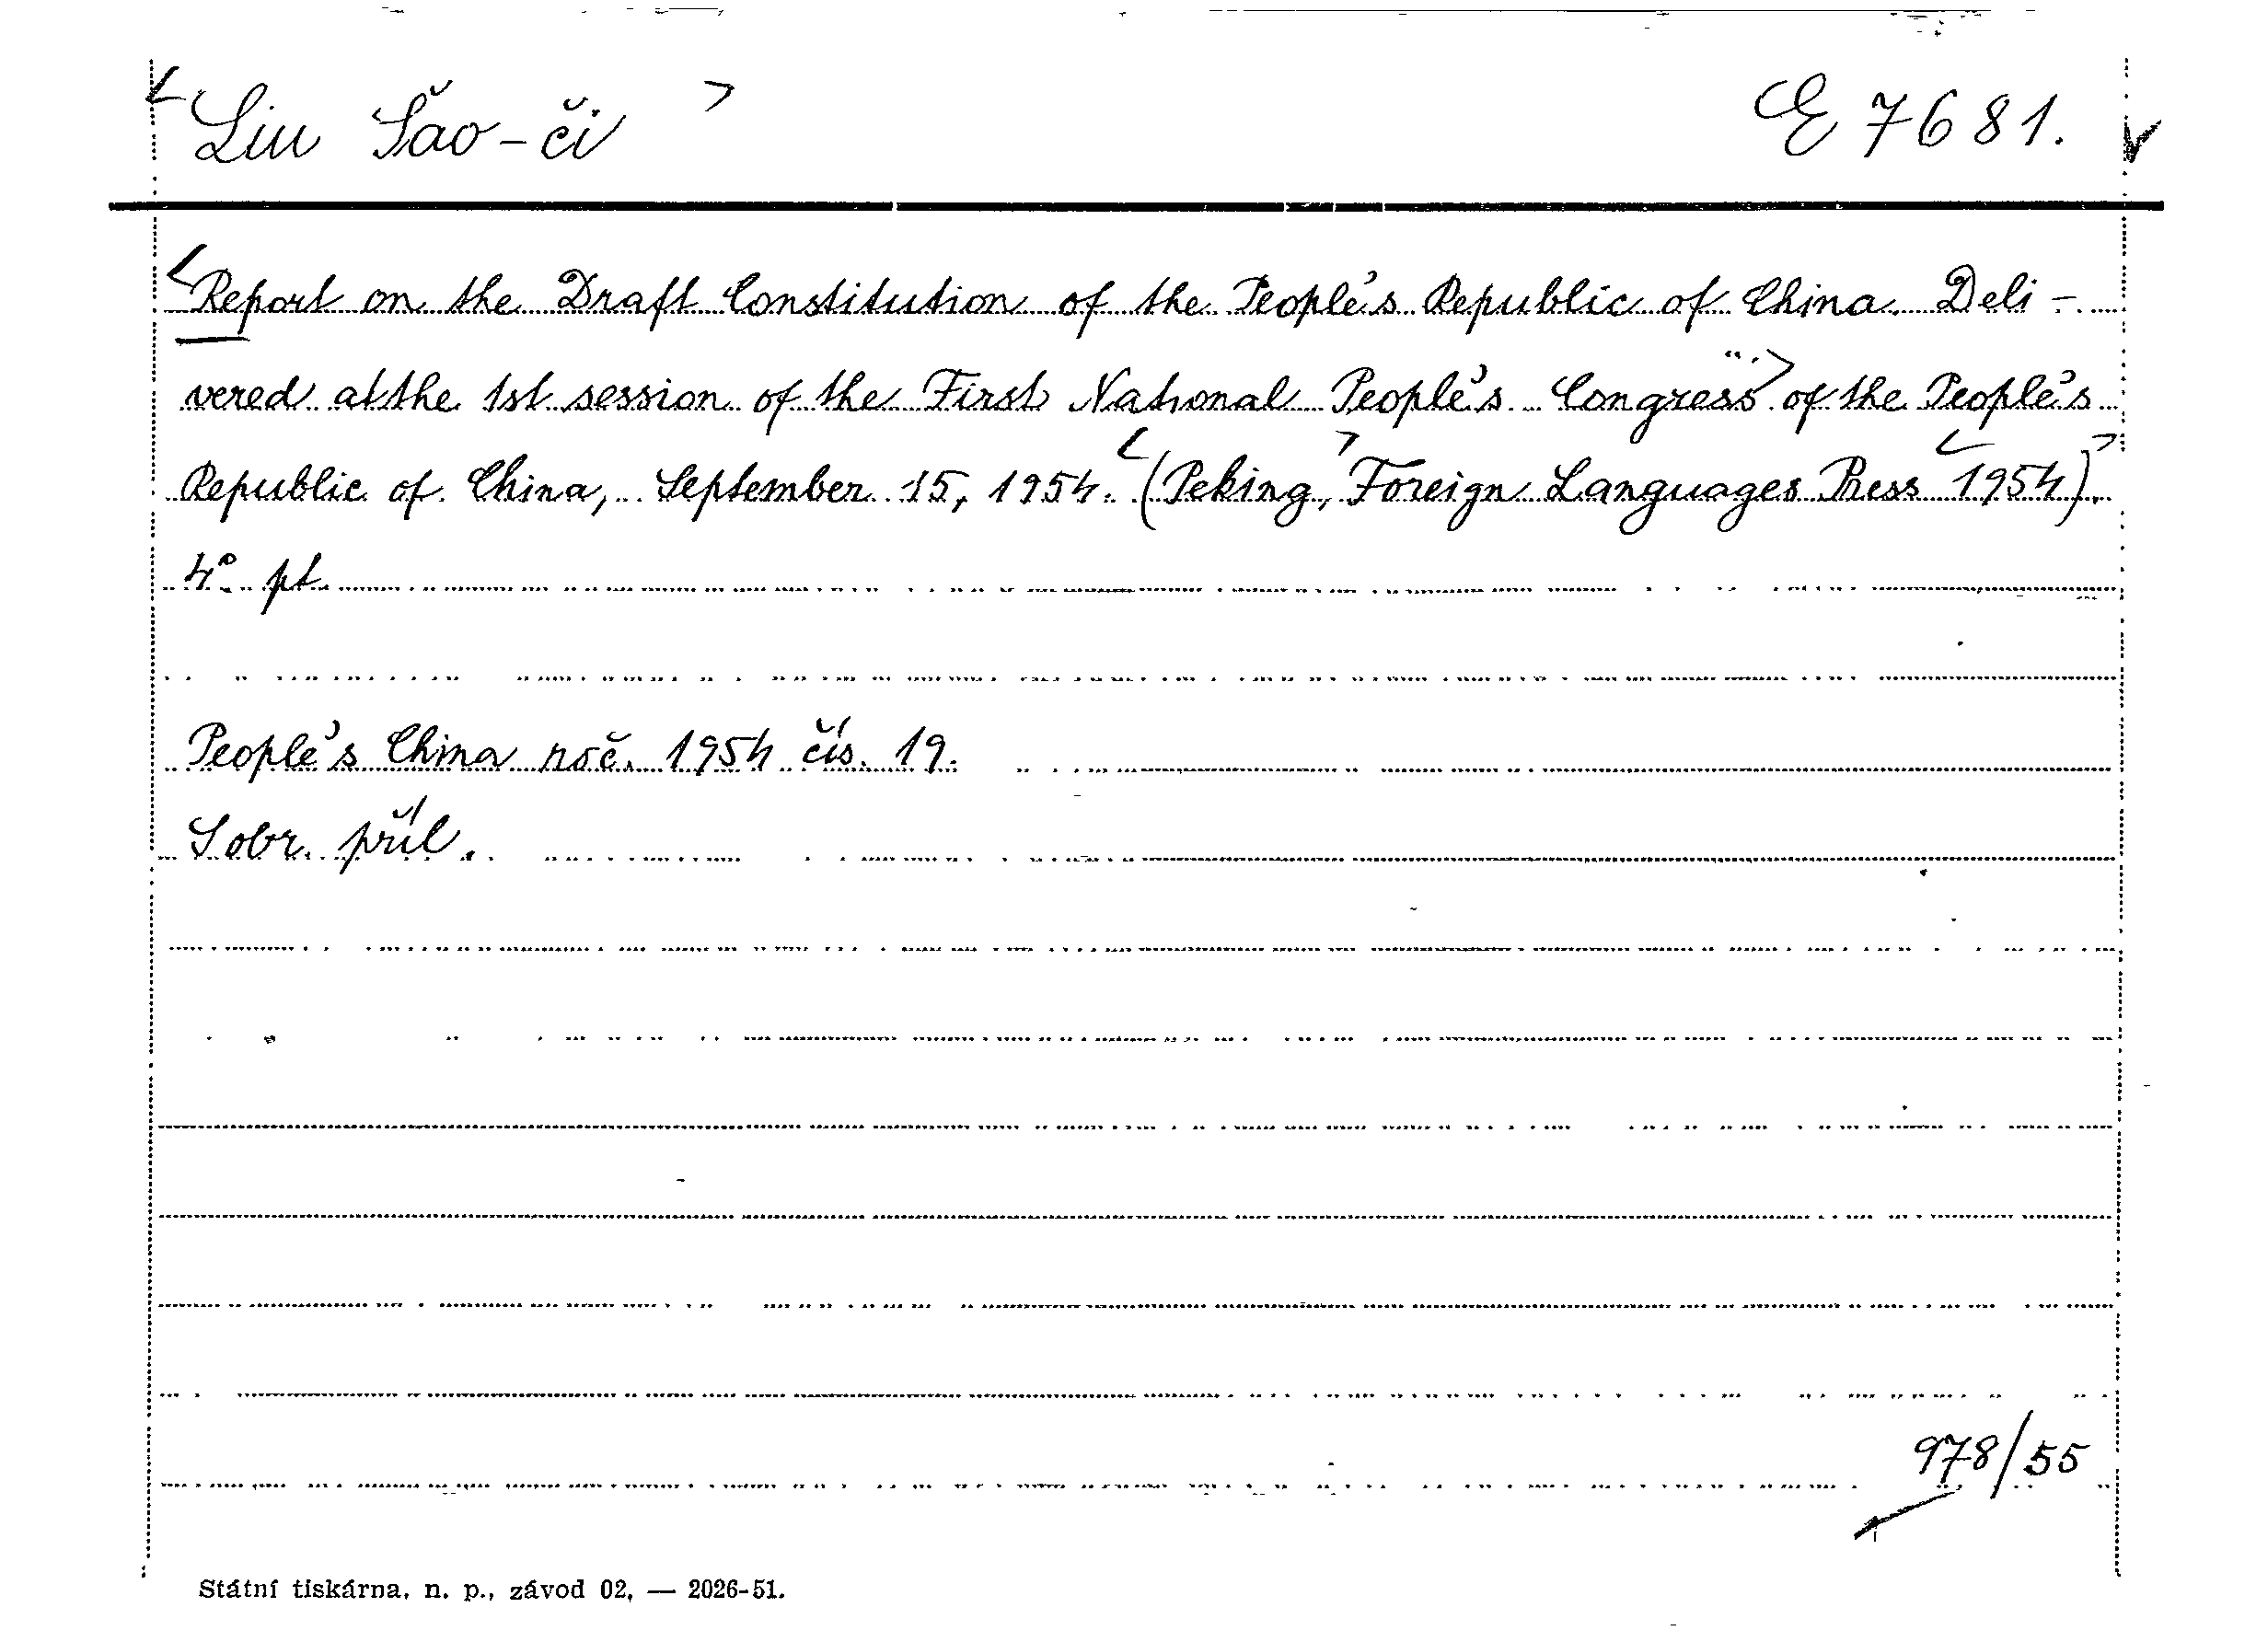 Liu Šao-či E 7681.
Report on the Draft Constitution of the People's Republic of China. Deli-
vered at the 1st session of the First National People's Congress... of the People's
Republic of China, September 15, 1954. (Peking, Foreign Languages Press 1954).
4° pt.
People's China roč. 1954 čís. 19.
S obr. příl.
978/55
Státní tiskárna, n. p., závod 02, — 2026-51.